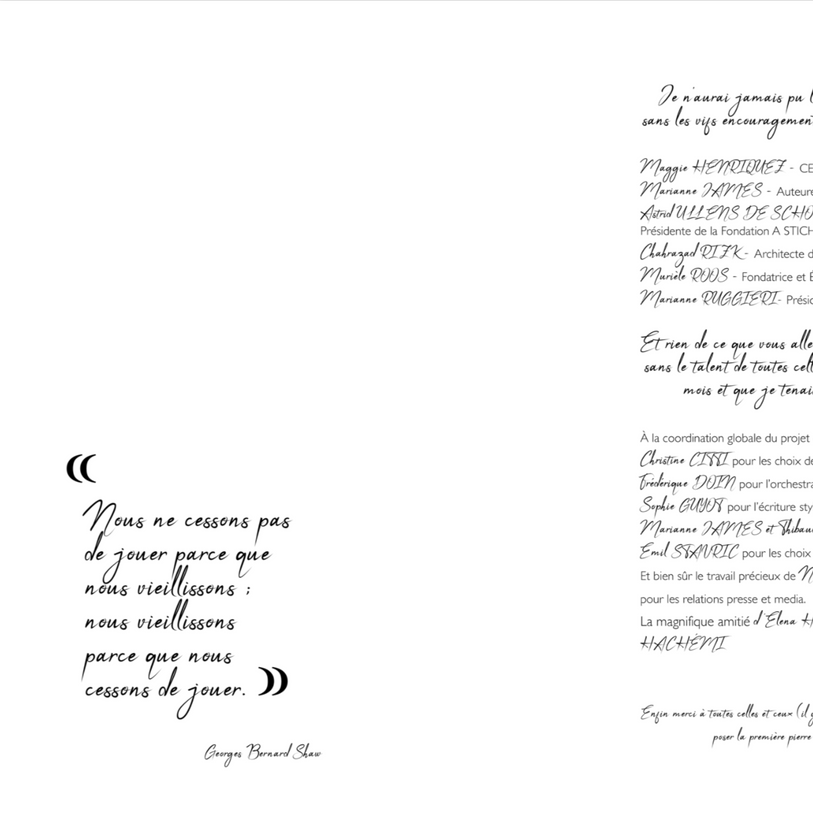 «
Nous ne cessons pas
de jouer parce que
nous vieillissons ;
nous vieillissons
parce que nous
cessons de jouer. »
Georges Bernard Shaw
Je n'aurai jamais pu l
sans les vifs encouragemen
Maggie HENRIQUEZ - CE
Marianne JAMES - Auteure
Astrid ULLENS DE SCHO
Présidente de la Fondation A STICH
Chahrazad RIZK - Architecte d
Murièle ROOS - Fondatrice et É
Marianne RUGGIERI - Présid
Et rien de ce que vous alle
sans le talent de toutes cell
mois et que je tenai
À la coordination globale du projet
Christine CITTI pour les choix de
Frédérique DOIN pour l'orchestra
Sophie GUYOT pour l'écriture sty
Marianne JAMES et Thibau
Emil STANRIC pour les choix
Et bien sûr le travail précieux de N
pour les relations presse et media.
La magnifique amitié d'Elena H
HACHÉMI
Enfin merci à toutes celles et ceux (il y
poser la première pierre